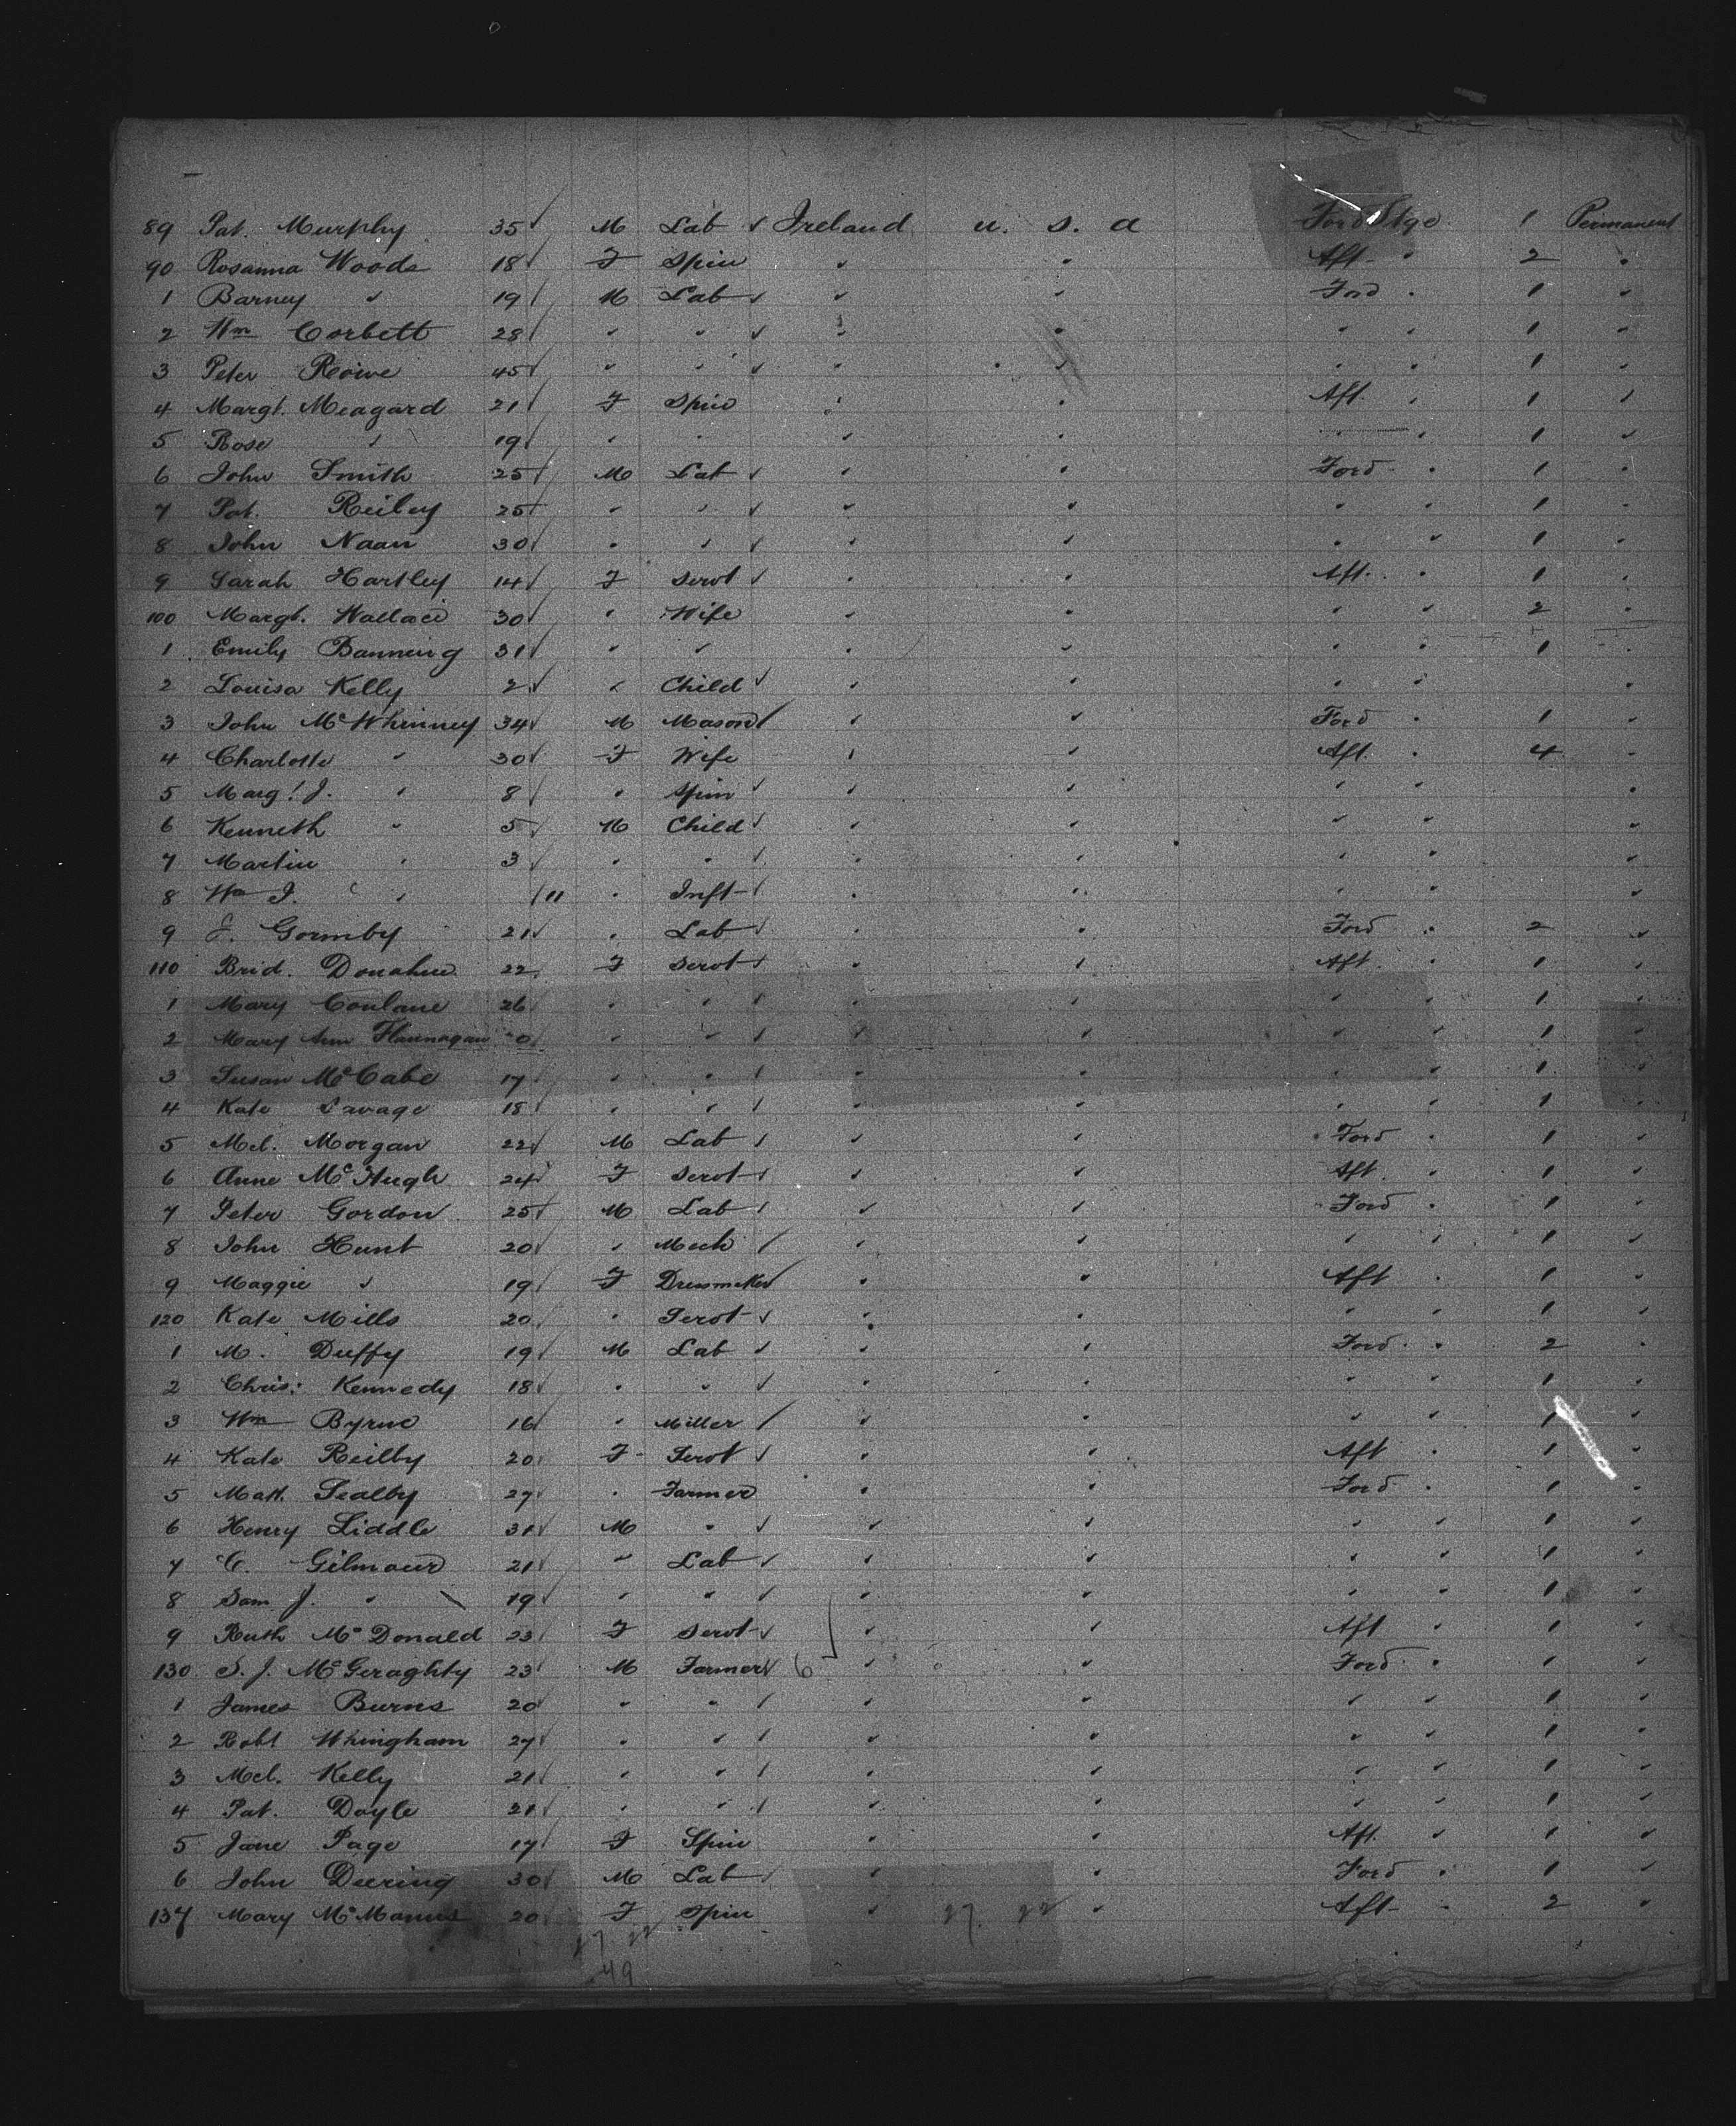 89 Pat. Murphy 35 M Lab Ireland U. S. A Ford Stge 1 Permanent
90 Rosanna Woods 18 F Spin " " Aft " 2 "
1 Barney " 19 M Lab " " Ford " 1 "
2 Wm Corbett 28 " " " " " " 1 "
3 Peter 45 " " " " " " 1 "
4 Margt. Meagard 21 F Spin " " Aft " 1 "
5 Rose " 19 " " " " " " 1 "
6 John Smith 25 M Lab " " Ford " 1 "
7 Pat. Reiley 25 " " " " " " 1 "
8 John Naan 30 " " " " " " 1 "
9 Sarah Hartley 14 F Servt " " Aft. " 1 "
100 Margt. Wallace 30 " Wife " " " " 2 "
1 Emily Banning 31 " " " " " " 1 "
2 Louisa Kelly 2 " Child " " " " "
3 John McWhinney 34 M Mason " " Ford " 1 "
4 Charlotte " 30 F Wife " " Aft. " 4 "
5 Margt. J. " 8 " Spin " " " " "
6 Kenneth " 5 M Child " " " " "
7 Martin " 3 " " " " " " "
8 Wm J. " /11 " Inft " " " " "
9 J. Gormby 21 " Lab " " Ford " 2 "
110 Brid. Donahue 22 F Servt " " Aft. " 1 "
1 Mary Conlane 26 " " " " " " 1 "
2 Mary Ann Flannagan " " " " " " 1 "
3 Susan McCabe 17 " " " " " " 1 "
4 Kate Savage 18 " " " " " " 1 "
5 Mcl. Morgan 22 M Lab " " Ford " 1 "
6 Anne McHugh 24 F Servt " " Aft. " 1 "
7 Peter Gordon 25 M Lab " " Ford " 1 "
8 John Hunt 20 " Mech " " " " 1 "
9 Maggie " 19 F Dressmaker " " Aft " 1 "
120 Kate Mills 20 " Servt " " " " 1 "
1 M. Duffy 19 M Lab " " Ford " 2 "
2 Chris: Kennedy 18 " " " " " " 1 "
3 Wm Byrne 16 " Miller " " " " 1 "
4 Kate Reilly 20 F Servt " " Aft " 1 "
5 Matt. 27 " Farmer " " Ford " 1 "
6 Henry Liddle 31 M " " " " " 1 "
7 C. Gilmour 21 " Lab " " " " 1 "
8 Sam J. " 19 " " " " " " 1 "
9 Ruth McDonald 23 F Servt " " Aft " 1 "
130 S. J. McGeraghty 23 M Farmer 6 " " Ford " 1 "
1 James Burns 20 " " " " " " 1 "
2 Robt Whingham 27 " " " " " " 1 "
3 Mcl. Kelly 21 " " " " " " 1 "
4 Pat. Doyle 21 " " " " " " 1 "
5 Jane Page 17 F Spin " " Aft. " 1 "
6 John Deering 30 M Lab " " Ford " 1 "
137 Mary McManus 20 F Spin " " Aft " 2 "
27 22
27 22
49